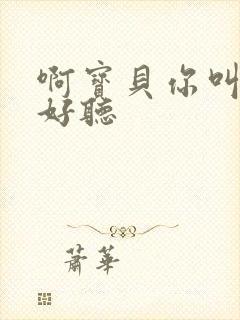 啊寶貝你叫
好聽
蕭華